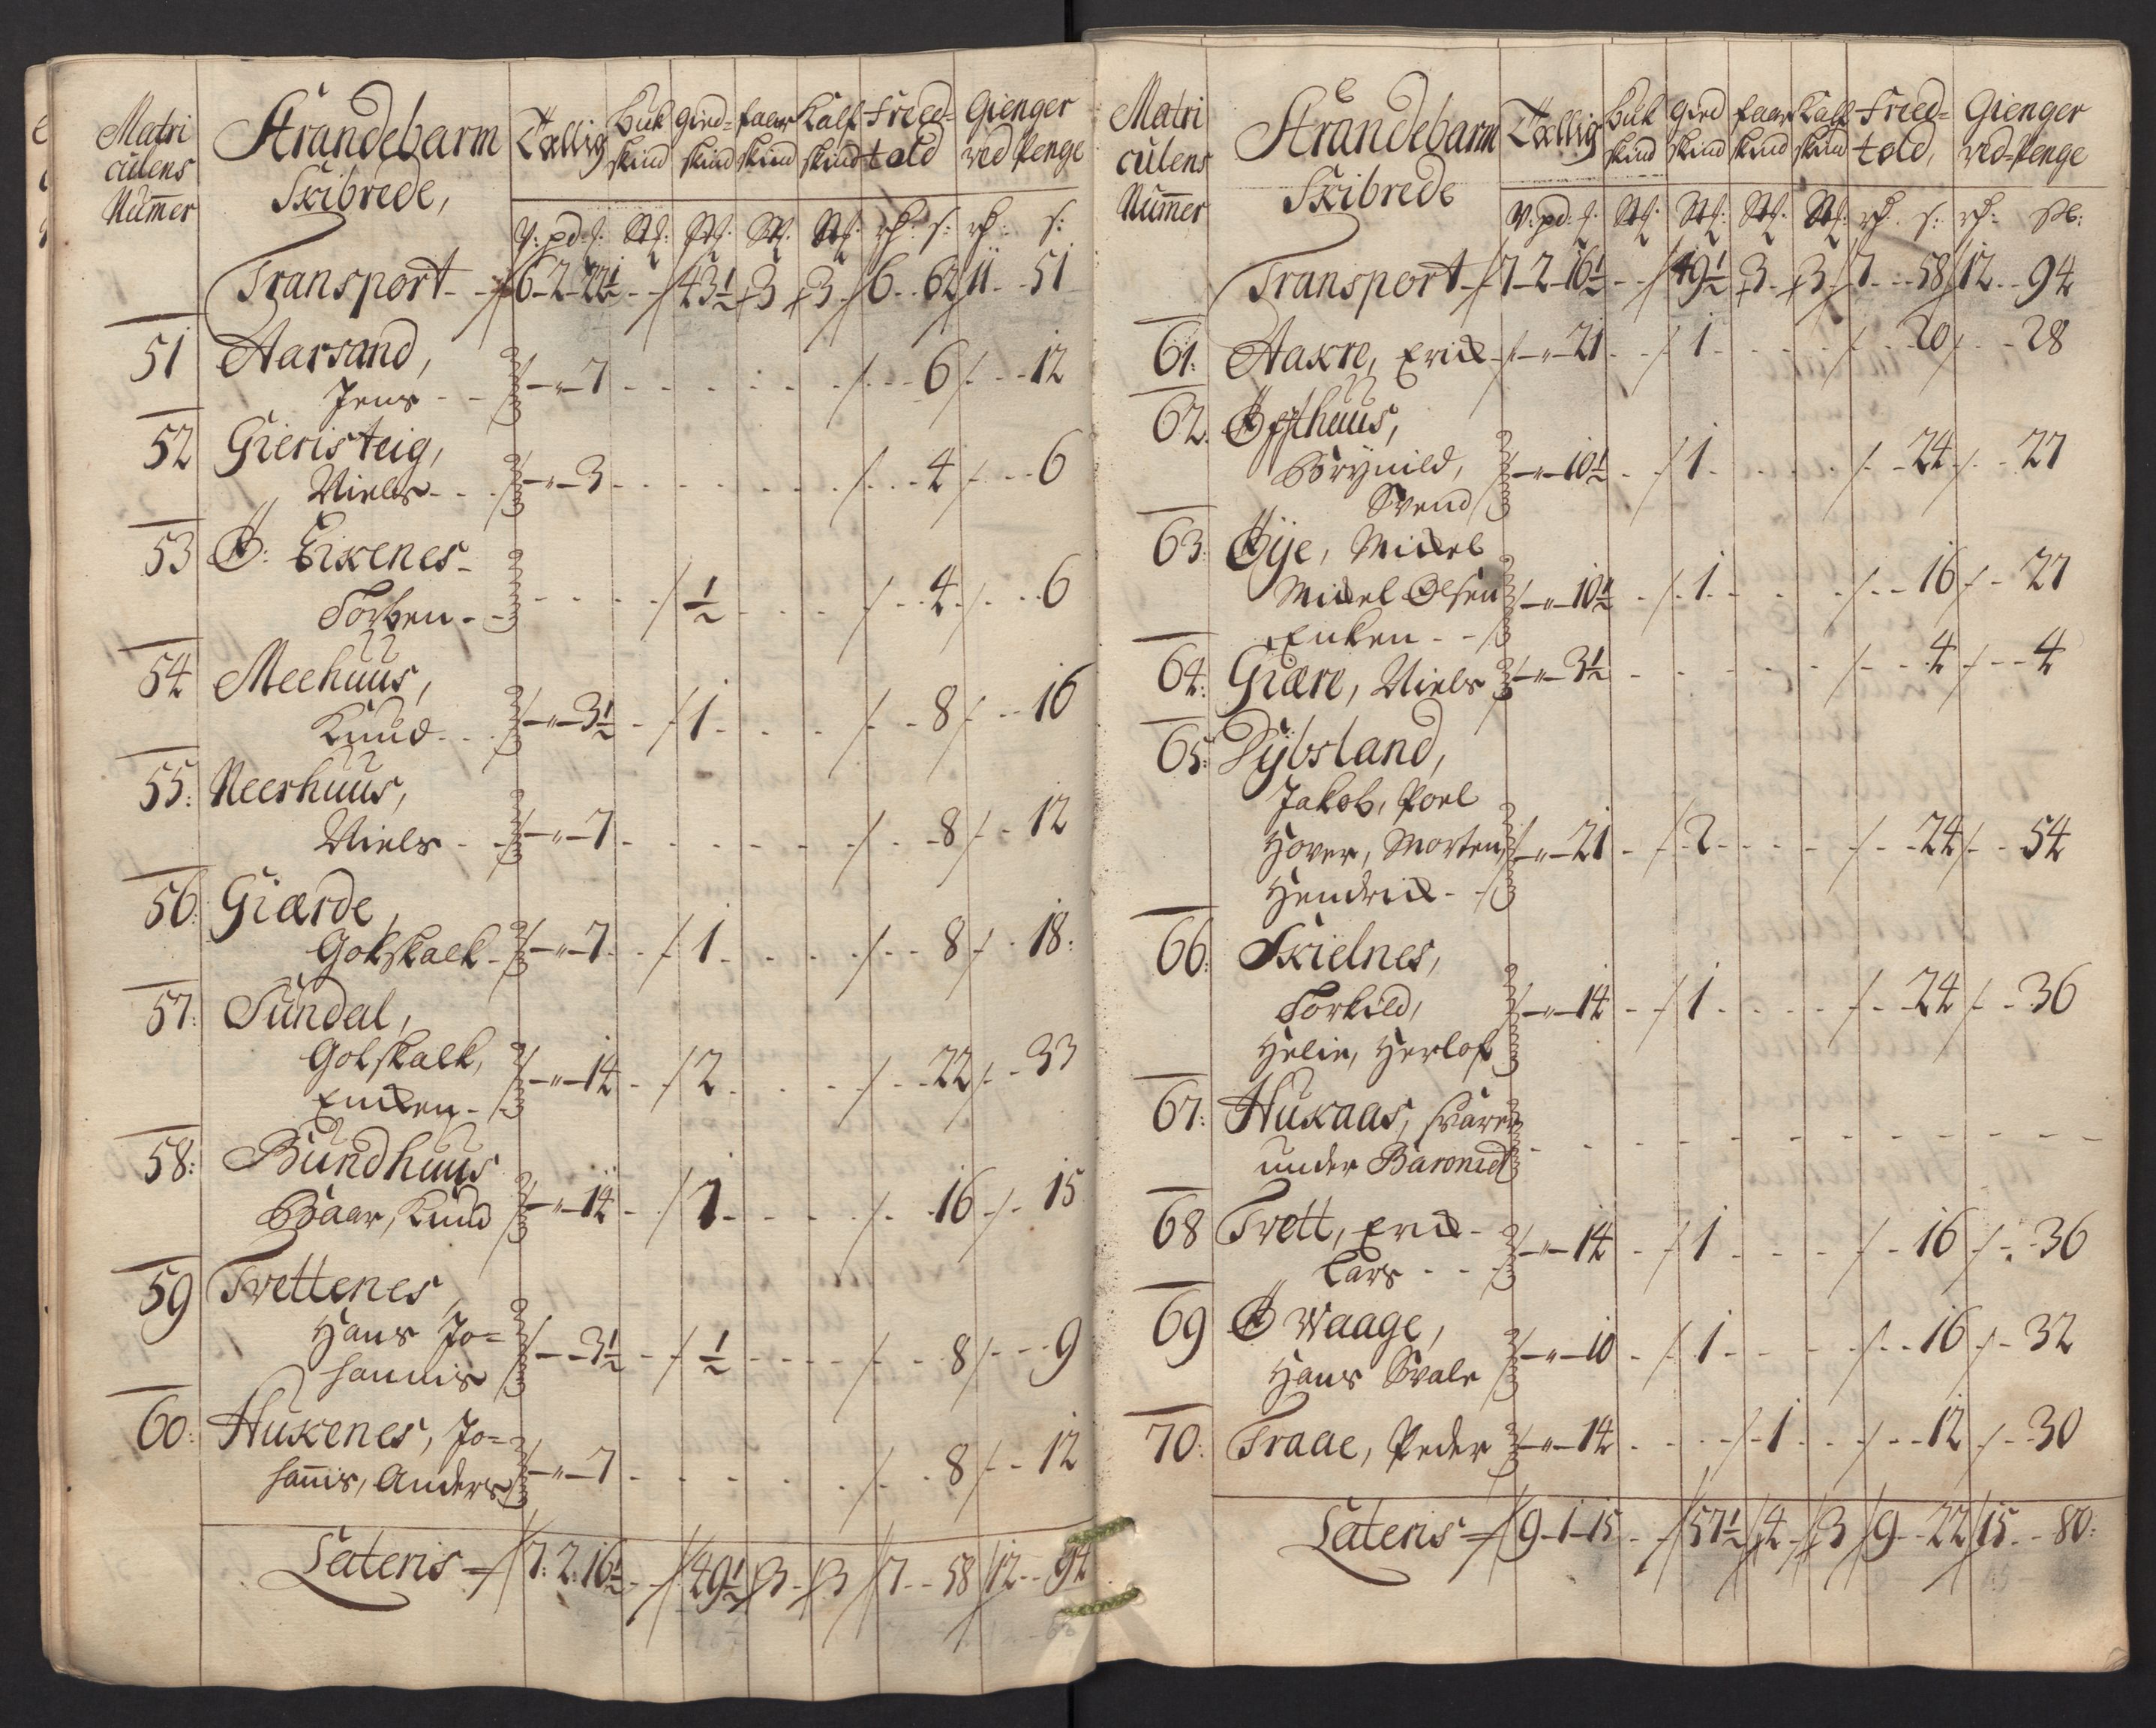 Matri
culens
Nummer
Strandebarm
Skibrede,
Tællig Buk skind Gied= skind faar skind Kalf skind Freed= told Gienger ved Penge
V: pd: s: St: St: St: St: rh: s: rh: s:
Transport 6-2-22½ 43½ 3 3 6 62 11 51
51 Aarsand,
Jens 7 6 12
52 Gieristeig,
Niels 3 4 6
53 Ø: Eikenes
Torben ½ 4 6
54 Meehuus,
Knud 3½ 1 8 16
55: Neerhuus,
Niels 7 8 12
56: Giærde,
Gotskalk 7 1 8 18:
57: Sundal,
Gotskalk,
Enken 14 2 22 33
58: Bundhuus
Baar, Knud 14 1 16 15
59 Tvettenes
Hans Jo=
hannis 3½ ½ 8 9
60: Hukenes, Jo=
hannis, Anders 7 8 12
Lateris 7: 2: 16½ 49½ 3 3 7 58 12 94
Matri
culens
Nummer
Strandebarm
Skibrede
Tællig Buk skind Gied skind faar skind Kalf skind Fried= told, Gienger ved=Penge
V: pd: s: St: St: St: St: rh: s: rh: sk:
Transport 7-2-16½ 49½ 3 3 7 58 12 94
61: Aakre, Erick 21 1 20 28
62. Øffthuus,
Brynild,
Svend 10½ 1 24 27
63: Øije, Mickel
Mickel Olsen
Enken 10½ 1 16 27
64: Giære, Niels 3½ 4 4
65: Dybsland,
Jakob, Poel
Hover, Morten
Hendrick 21 2 24 54
66: Skielnes,
Torkild,
Helie, Herlof 14 1 24 36
67: Hukaas, svarer
under Baroniet
68 Tvett, Erick
Lars 14 1 16 36
69 Ø Waage,
Hans Svale 10 1 16 32
70: Traae, Peder 14 1 12 30
Lateris 9-1-15 57½ 4 3 9 22 15 80: